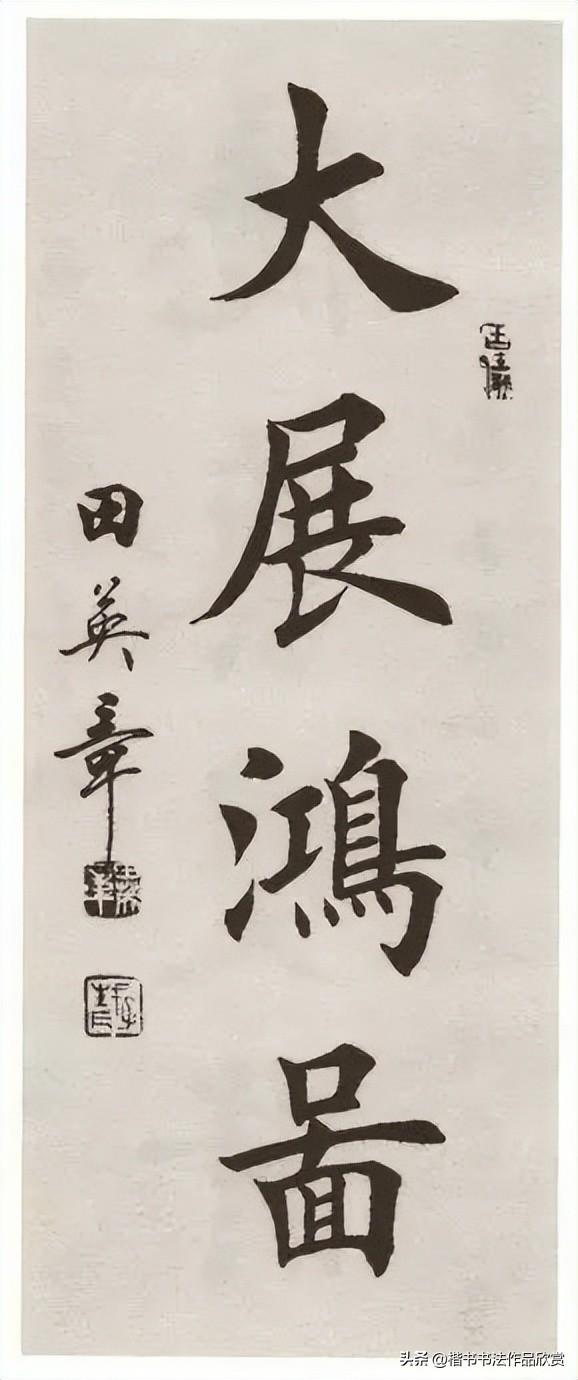 大展鴻啚
田英章
头条 @楷书书法作品欣赏